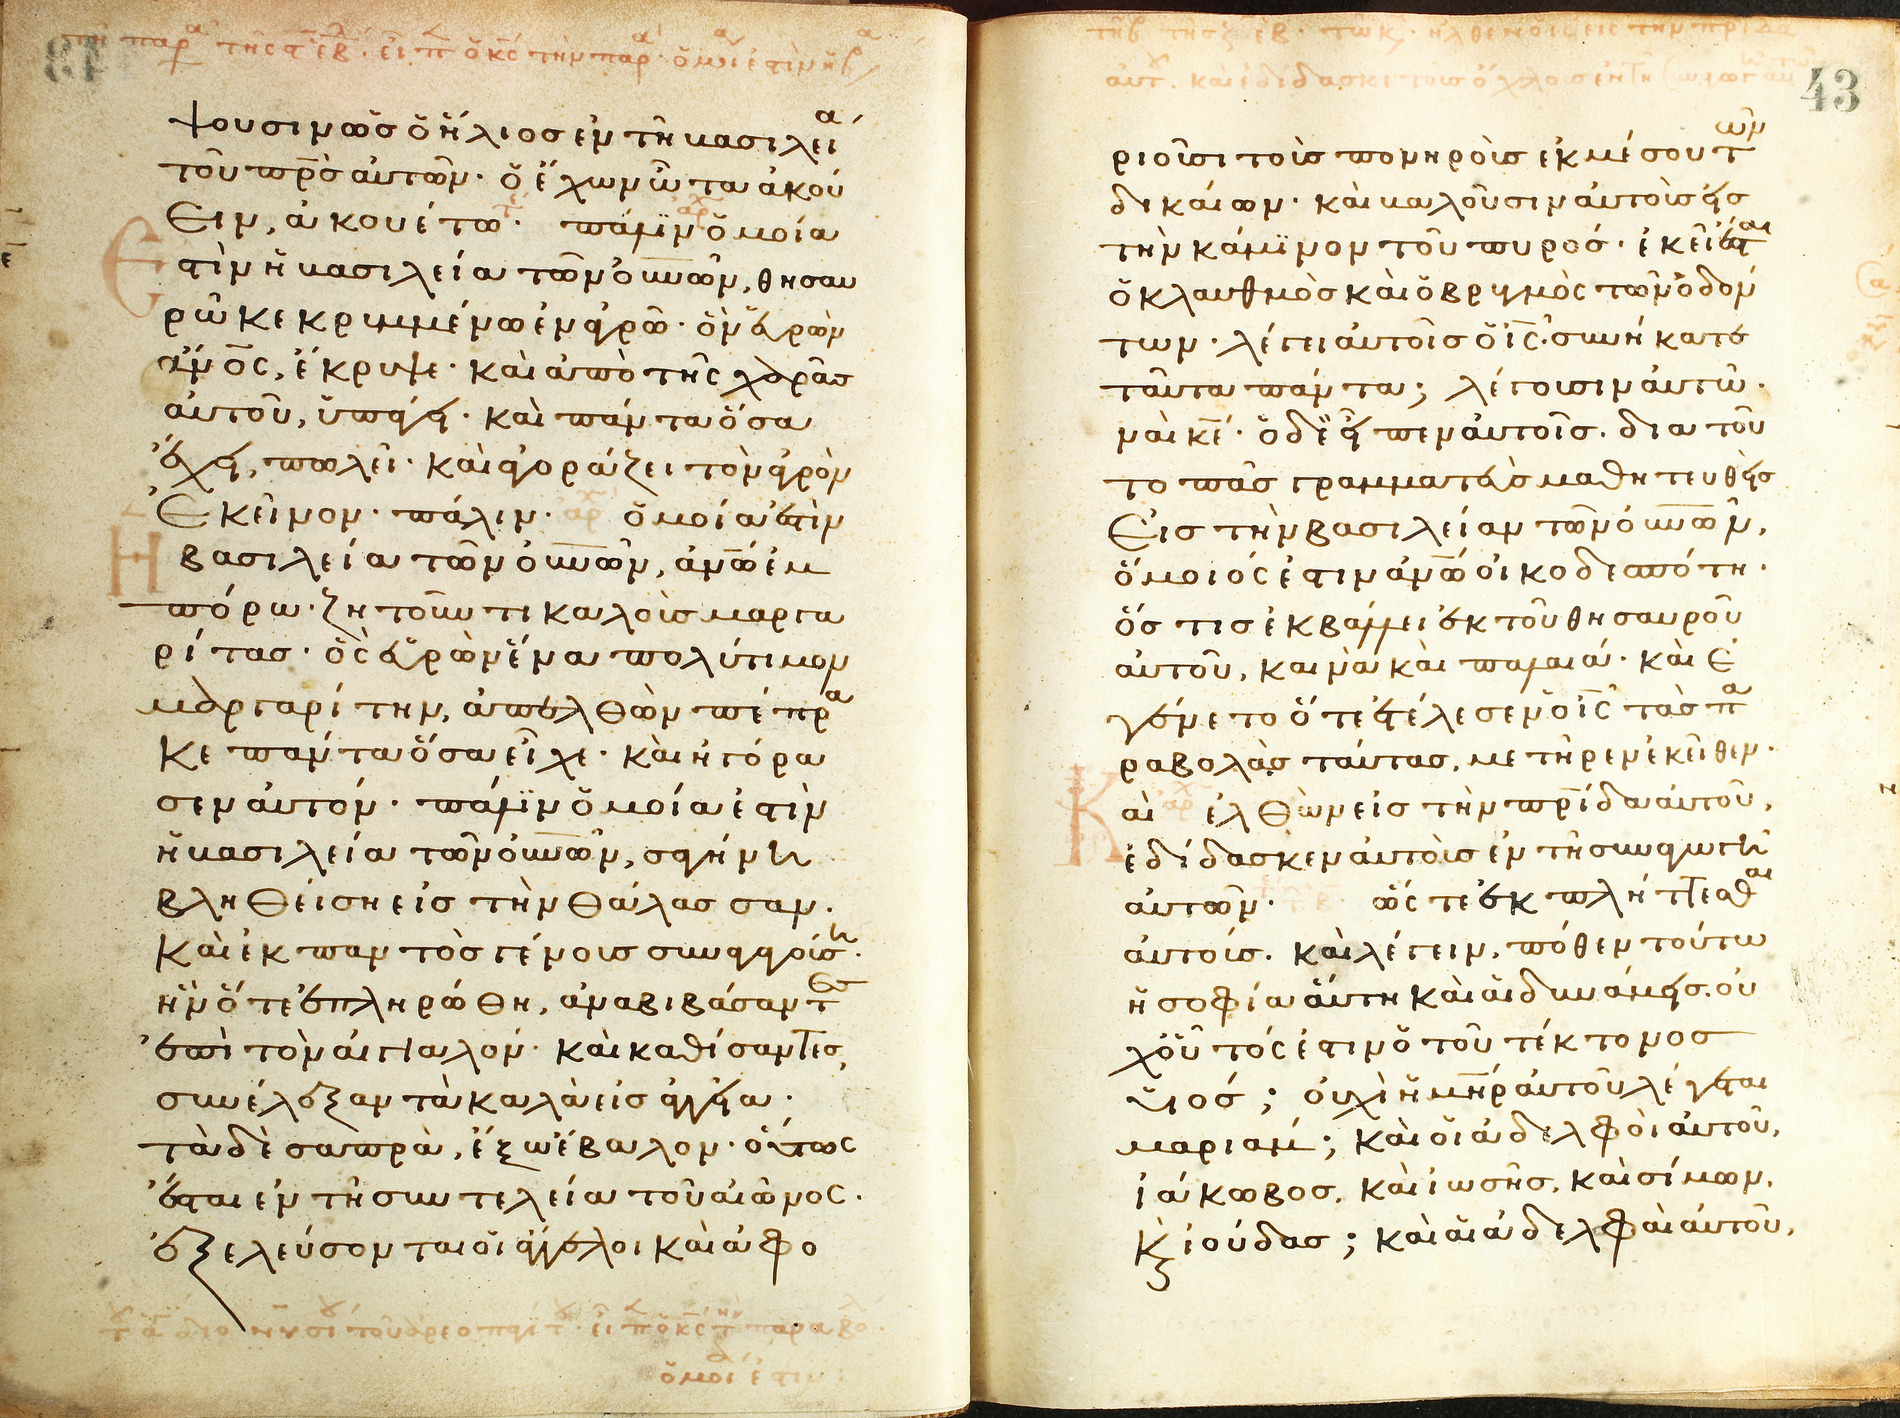 ψουσιν ὡς ὁ ἥλιος ἐν τῆ βασιλεία
τοῦ πρ̅ς αὐτῶν· ὁ ἔχων ὦτα ἀκού
ειν, ἀκουέτω· πάλιν ὁμοία
ἐστὶν ἡ βασιλεία τῶν οὐν̅ων, θησαυ
ρῶ κεκρυμμένω ἐν ἀγρῶ· ὃν εὑρὼν
ἄν̅ος, ἔκρυψε· καὶ ἀπὸ τῆς χαρᾶς
αὐτοῦ, ὑπάγει· καὶ πάντα ὅσα
ἔχει, πωλεῖ· καὶ ἀγοράζει τὸν ἀγρὸν
ἐκεῖνον· πάλιν· ὁμοία ἐστὶν
ἡ βασιλεία τῶν οὐν̅ων, ἀν̅ω ἐμ
πόρω· ζητοῦντι καλοὺς μαργα
ρίτας· ὃς εὑρὼν ἕνα πολύτιμον
μαργαρίτην, ἀπελθὼν πέπρα
κε πάντα ὅσα εἶχε· καὶ ἠγόρα
σεν αὐτόν· πάλιν ὁμοία ἐστὶν
ἡ βασιλεία τῶν οὐν̅ων, σαγήνη
βληθείση εἰς τὴν θάλασσαν·
καὶ ἐκ παντὸς γένους συναγαγούση·
ἣν ὅτε ἐπληρώθη, ἀναβιβάσαντες
ἐπὶ τὸν αἰγιαλόν· καὶ καθίσαντες,
συνέλεξαν τὰ καλὰ εἰς ἀγγεῖα·
τὰ δὲ σαπρὰ, ἔξω ἔβαλον· οὕτως
ἔσται ἐν τῆ συντελεία τοῦ αἰῶνος·
ἐξελεύσονται οἱ ἄγγελοι καὶ ἀφο
43
ριοῦσι τοὺς πονηροὺς ἐκ μέσου τῶν
δικαίων· καὶ βαλοῦσιν αὐτοὺς εἰς
τὴν κάμινον τοῦ πυρός· ἐκεῖ ἔσται
ὁ κλαυθμὸς καὶ ὁ βρυγμὸς τῶν ὀδόν
των· λέγει αὐτοῖς ὁ ις̅· συνήκατε
ταῦτα πάντα; λέγουσιν αὐτῶ·
ναὶ κε̅· ὁ δὲ εἶπεν αὐτοῖς· διὰ τοῦ
το πᾶς γραμματεὺς μαθητευθεὶς
εἰς τὴν βασιλείαν τῶν οὐν̅ων,
ὅμοιός ἐστιν ἀν̅ω οἰκοδεσπότη·
ὅστις ἐκβάλλει ἐκ τοῦ θησαυροῦ
αὐτοῦ, καινὰ καὶ παλαιά· καὶ ἐ
γένετο ὅτε ἐτέλεσεν ὁ ις̅ τὰς πα
ραβολὰς ταύτας, μετῆρεν ἐκεῖθεν·
Καὶ ἐλθὼν εἰς τὴν πρ̅ίδα αὐτοῦ,
ἐδίδασκεν αὐτοὺς ἐν τῆ συναγωγῆ
αὐτῶν· ὥστε ἐκπλήττεσθαι
αὐτούς· καὶ λέγειν, πόθεν τούτω
ἡ σοφία αὕτη καὶ αἱ δυνάμεις· οὐ
χ οὗτός ἐστιν ὁ τοῦ τέκτονος
υἱός; οὐχὶ ἡ μη̅ρ αὐτοῦ λέγεται
μαριάμ; καὶ οἱ ἀδελφοὶ αὐτοῦ,
ἰάκωβος, καὶ ἰωσῆς, καὶ σίμων,
κ ἰούδας; καὶ αἱ ἀδελφαὶ αὐτοῦ,